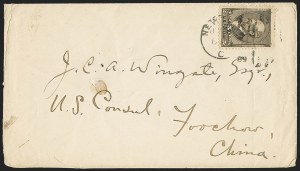 J. C. A. Wingate, Esqr.,
U. S. Consul,
Foochow,
China.